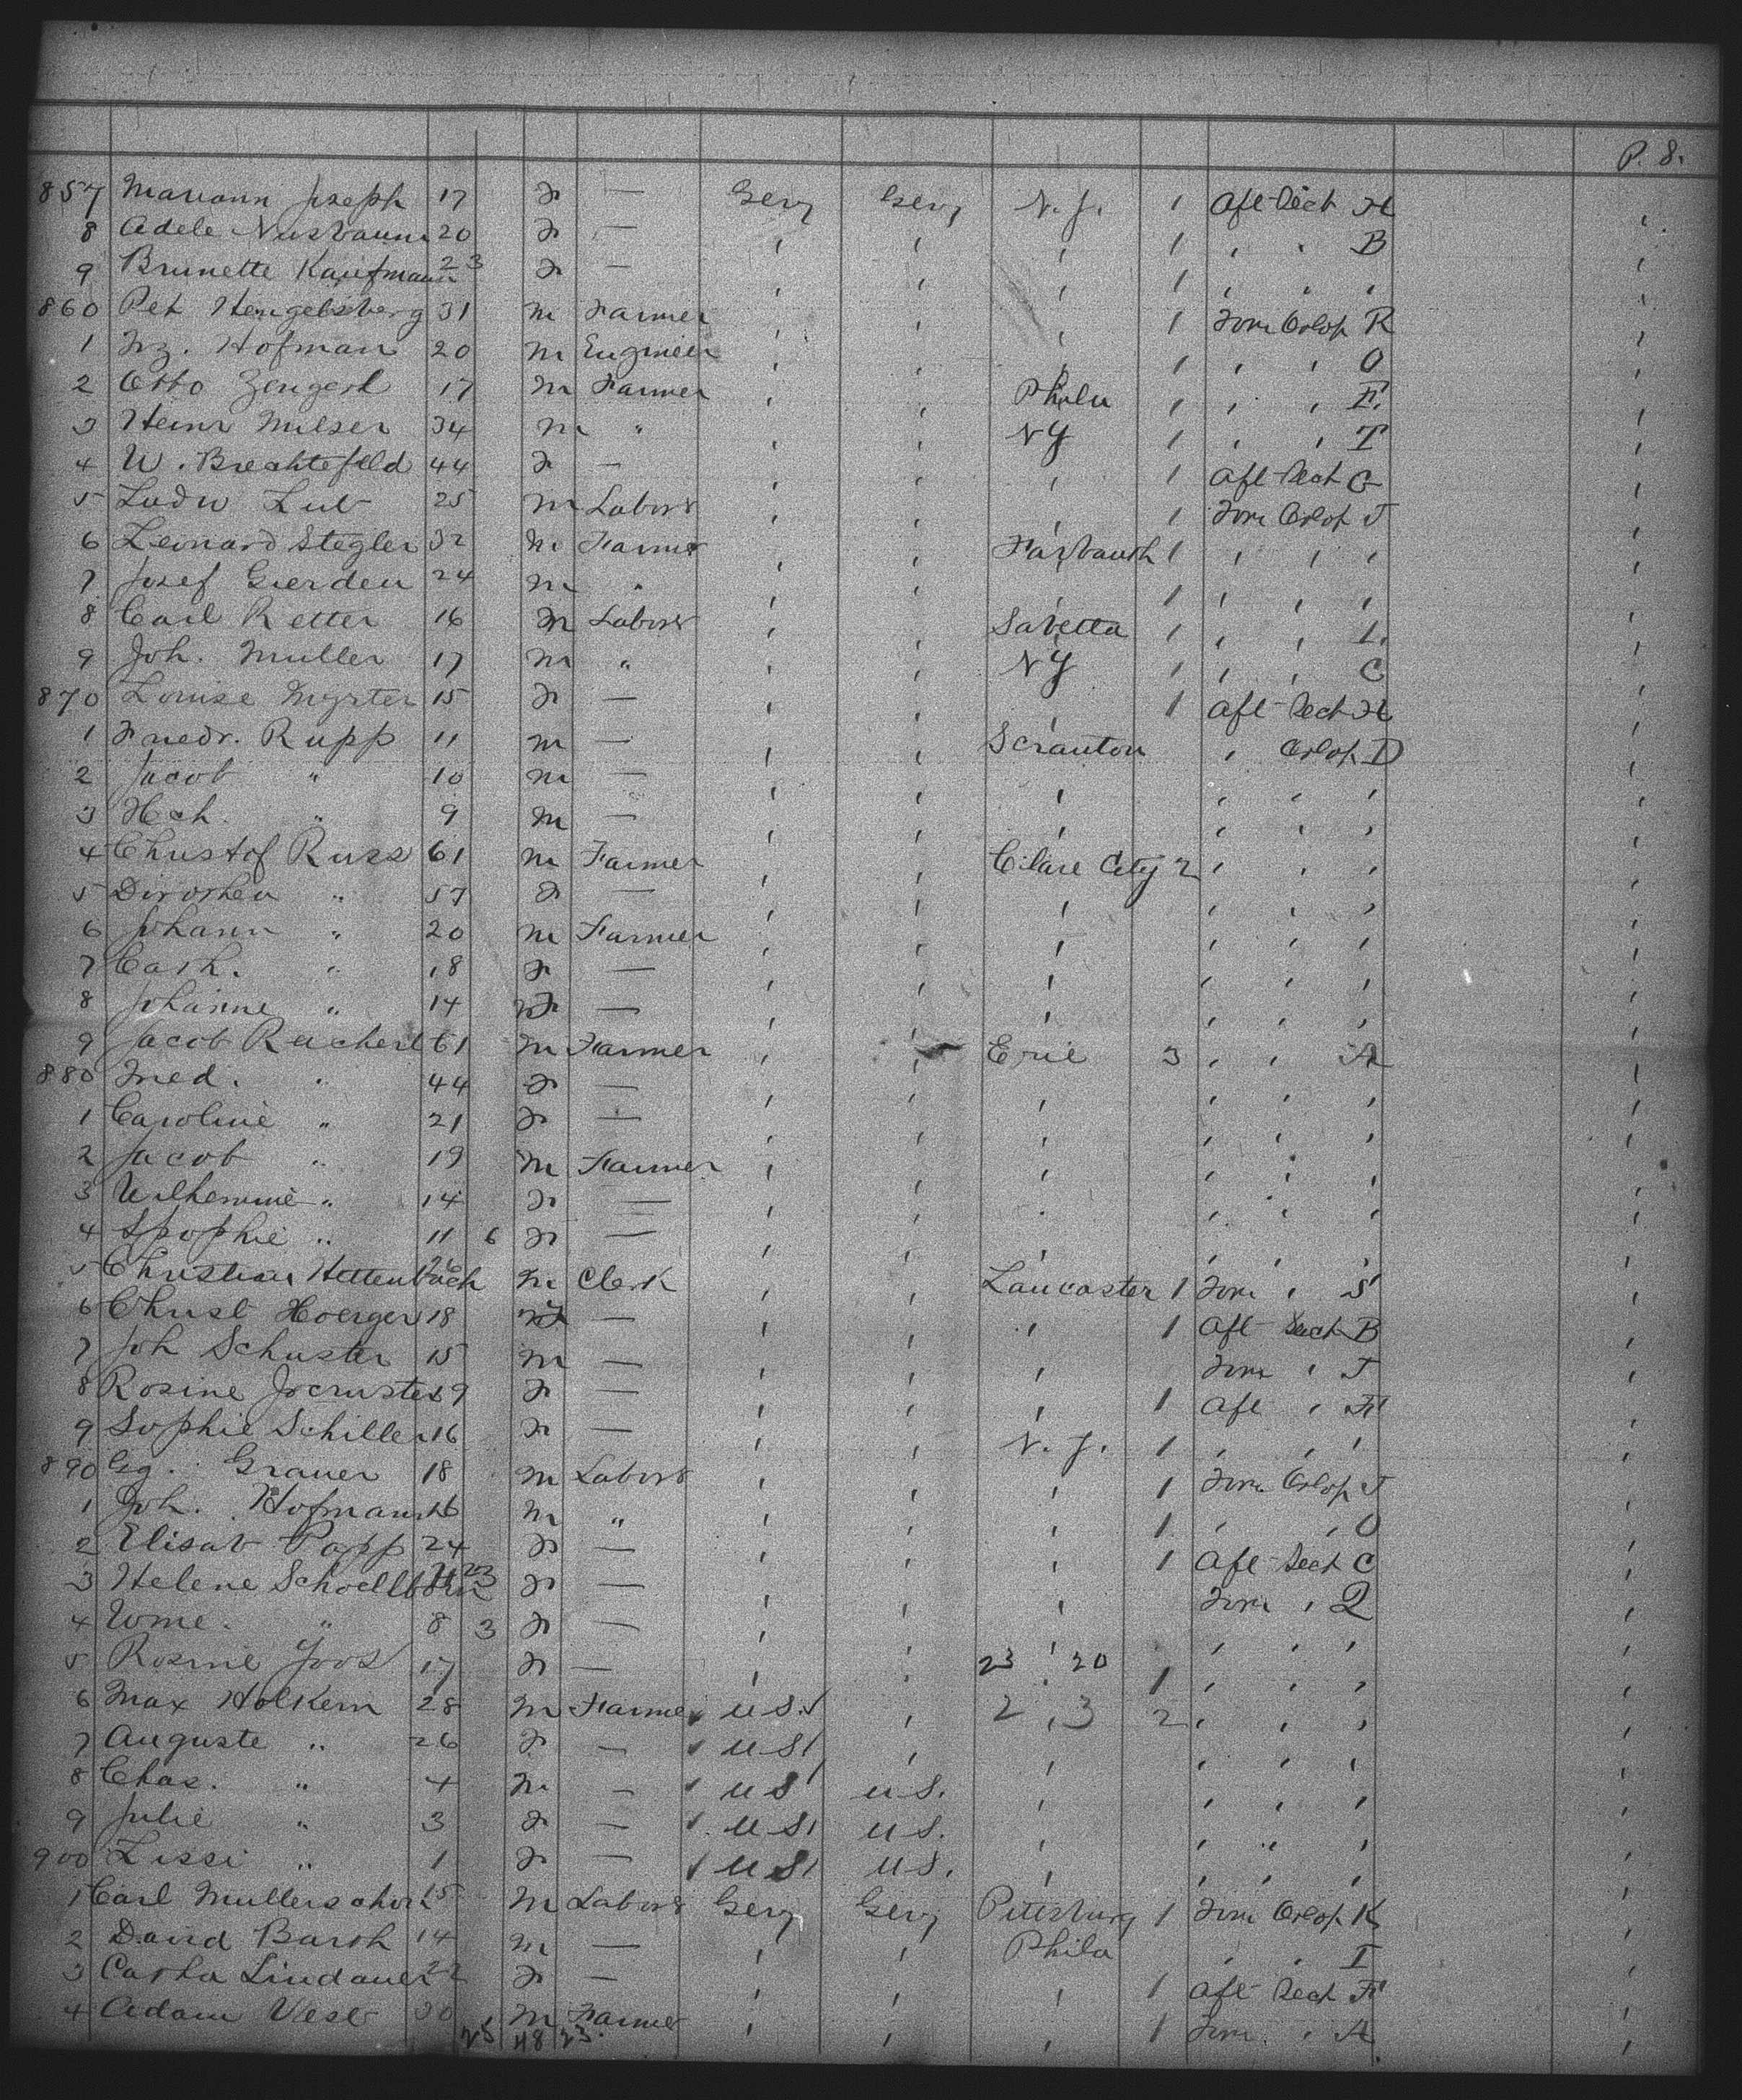 P. 8.
857 Mariann Joseph 17 F — Gery Gery N. J. 1 Aft Deck H
8 Adele Nusbaum 20 F — " " " 1 " " B
9 Brunette Kaufmann 23 F — " " " 1 " " "
860 Pet Hengelsberg 31 M Farmer " " " 1 Forw Orlop R
1 Frz. Hofman 20 M Engineer " " " 1 " " O
2 Otto 17 M Farmer " " Phila 1 " " E
3 Heinr Milser 34 M " " " NY 1 " " T
4 W. Brechtefeld 44 F — " " " 1 Aft Deck G
5 Ludw Lub 25 M Labor " " " 1 Forw Orlop J
6 Leonard Stegler 32 M Farmer " " 1 " " "
7 Josef Gierden 24 M " " " " 1 " " "
8 Carl Retter 16 M Labor " " Sabetta 1 " " L
9 Joh. Muller 17 M " " " NY 1 " " C
870 Louise Myrter 15 F — " " " 1 Aft Deck H
1 Friedr. Rupp 11 M — " " Scranton " Orlop D
2 Jacob " 10 M — " " " " " "
3 Hch. " 9 M — " " " " " "
4 Christof Russ 61 M Farmer " " Clare City 2 " " "
5 Dorothea " 57 F — " " " " " "
6 Johann " 20 M Farmer " " " " " "
7 Cath. " 18 F — " " " " " "
8 Johanne " 14 F — " " " " " "
9 Jacob Reichert 61 M Farmer " " Erie 3 " " A
880 Fried. " 44 F — " " " " " "
1 Caroline " 21 F — " " " " " "
2 Jacob " 19 M Farmer " " " " " "
3 Wilhemine " 14 F — " " " " " "
4 Spophie " 11 6 F — " " " " " "
5 Christian Hettenbach 26 M Clerk " " Lancaster 1 Forw " S
6 Christ Hoerger 18 F — " " " 1 Aft Deck B
7 Joh Schuster 15 M — " " " Forw " J
8 Rosine 19 F — " " " 1 Aft " F
9 Sophie Schiller 16 F — " " N. J. 1 " " "
890 Gg. Grauer 18 M Labor " " " 1 Forw Orlop J
1 Joh. Hofmann 16 M " " " " 1 " " O
2 Elisab Papp 24 F — " " " 1 Aft Deck C
3 Helene Schoellhorn 23 F — " " " Forw " Q
4 Wme. " 8 3 F — " " " " " "
5 Rosine Joos 17 F — " " 23 " 20 1 " " "
6 Max Holkern 28 M Farmer U S. " 2 " 3 2 " " "
7 Auguste " 26 F — U S " " " " "
8 Chas. " 4 M — U S U S. " " " "
9 Julie " 3 F — U S U S. " " " "
900 Lissi " 1 F — U S U S. " " " "
1 Carl Mullerschon 15 M Labor Gery Gery Pittsburg 1 Forw Orlop K
2 David Barth 14 M — " " Phila " " I
3 Carha Lindauer 22 F — " " " 1 Aft Deck F
4 Adam 30 M Farmer " " " 1 Forw " A
25 48 23.